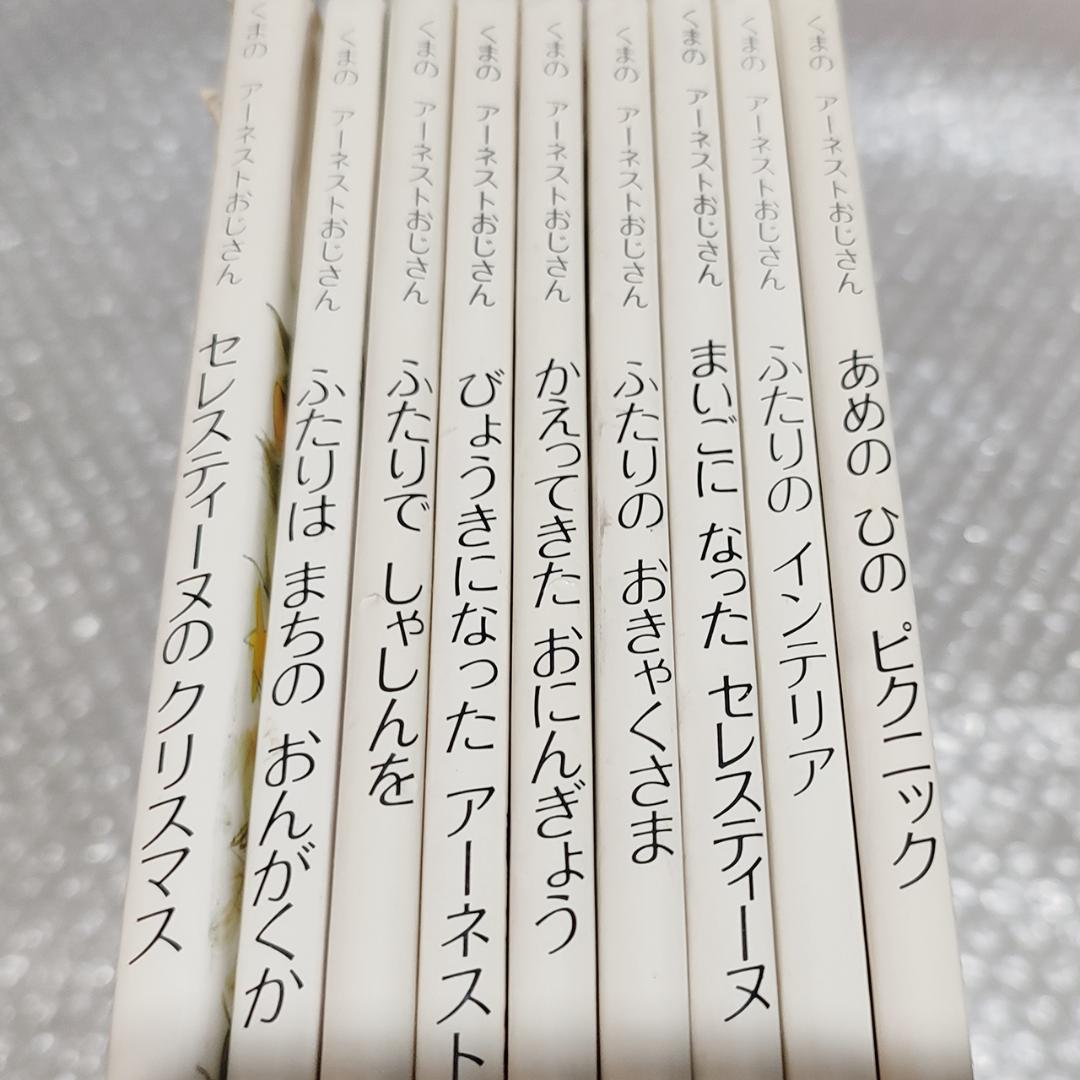 くまの アーネストおじさん セレスティーヌの クリスマス
くまの アーネストおじさん ふたりは まちの おんがくか
くまの アーネストおじさん ふたりで しゃしんを
くまの アーネストおじさん びょうきになった アーネスト
くまの アーネストおじさん かえってきた おにんぎょう
くまの アーネストおじさん ふたりの おきゃくさま
くまの アーネストおじさん まいごに なった セレスティーヌ
くまの アーネストおじさん ふたりの インテリア
くまの アーネストおじさん あめの ひの ピクニック